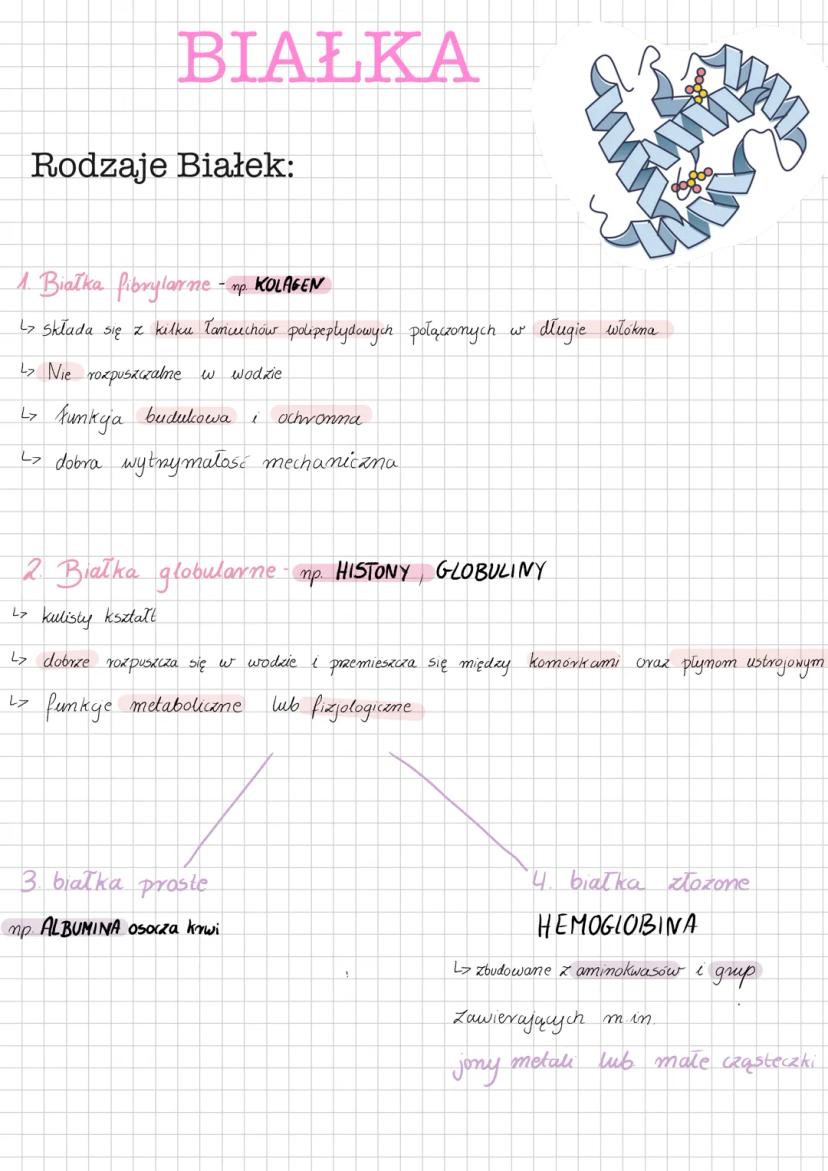 BIAŁKA
Rodzaje Białek:
1. Białka fibrylarne - np. KOLAGEN
↳ składa się z kilku łańcuchów polipeptydowych połączonych w długie włókna
↳ Nie rozpuszczalne w wodzie
↳ funkcja budulcowa i ochronna
↳ dobra wytrzymałość mechaniczna
2. Białka globularne - np. HISTONY, GLOBULINY
↳ kulisty kształt
↳ dobrze rozpuszcza się w wodzie i przemieszcza się między komórkami oraz płynom ustrojowym
↳ funkcje metaboliczne lub fizjologiczne
3. białka proste
np. ALBUMINA osocza krwi
4. białka złożone
HEMOGLOBINA
↳ zbudowane z aminokwasów i grup
zawierających m.in.
jony metali lub małe cząsteczki